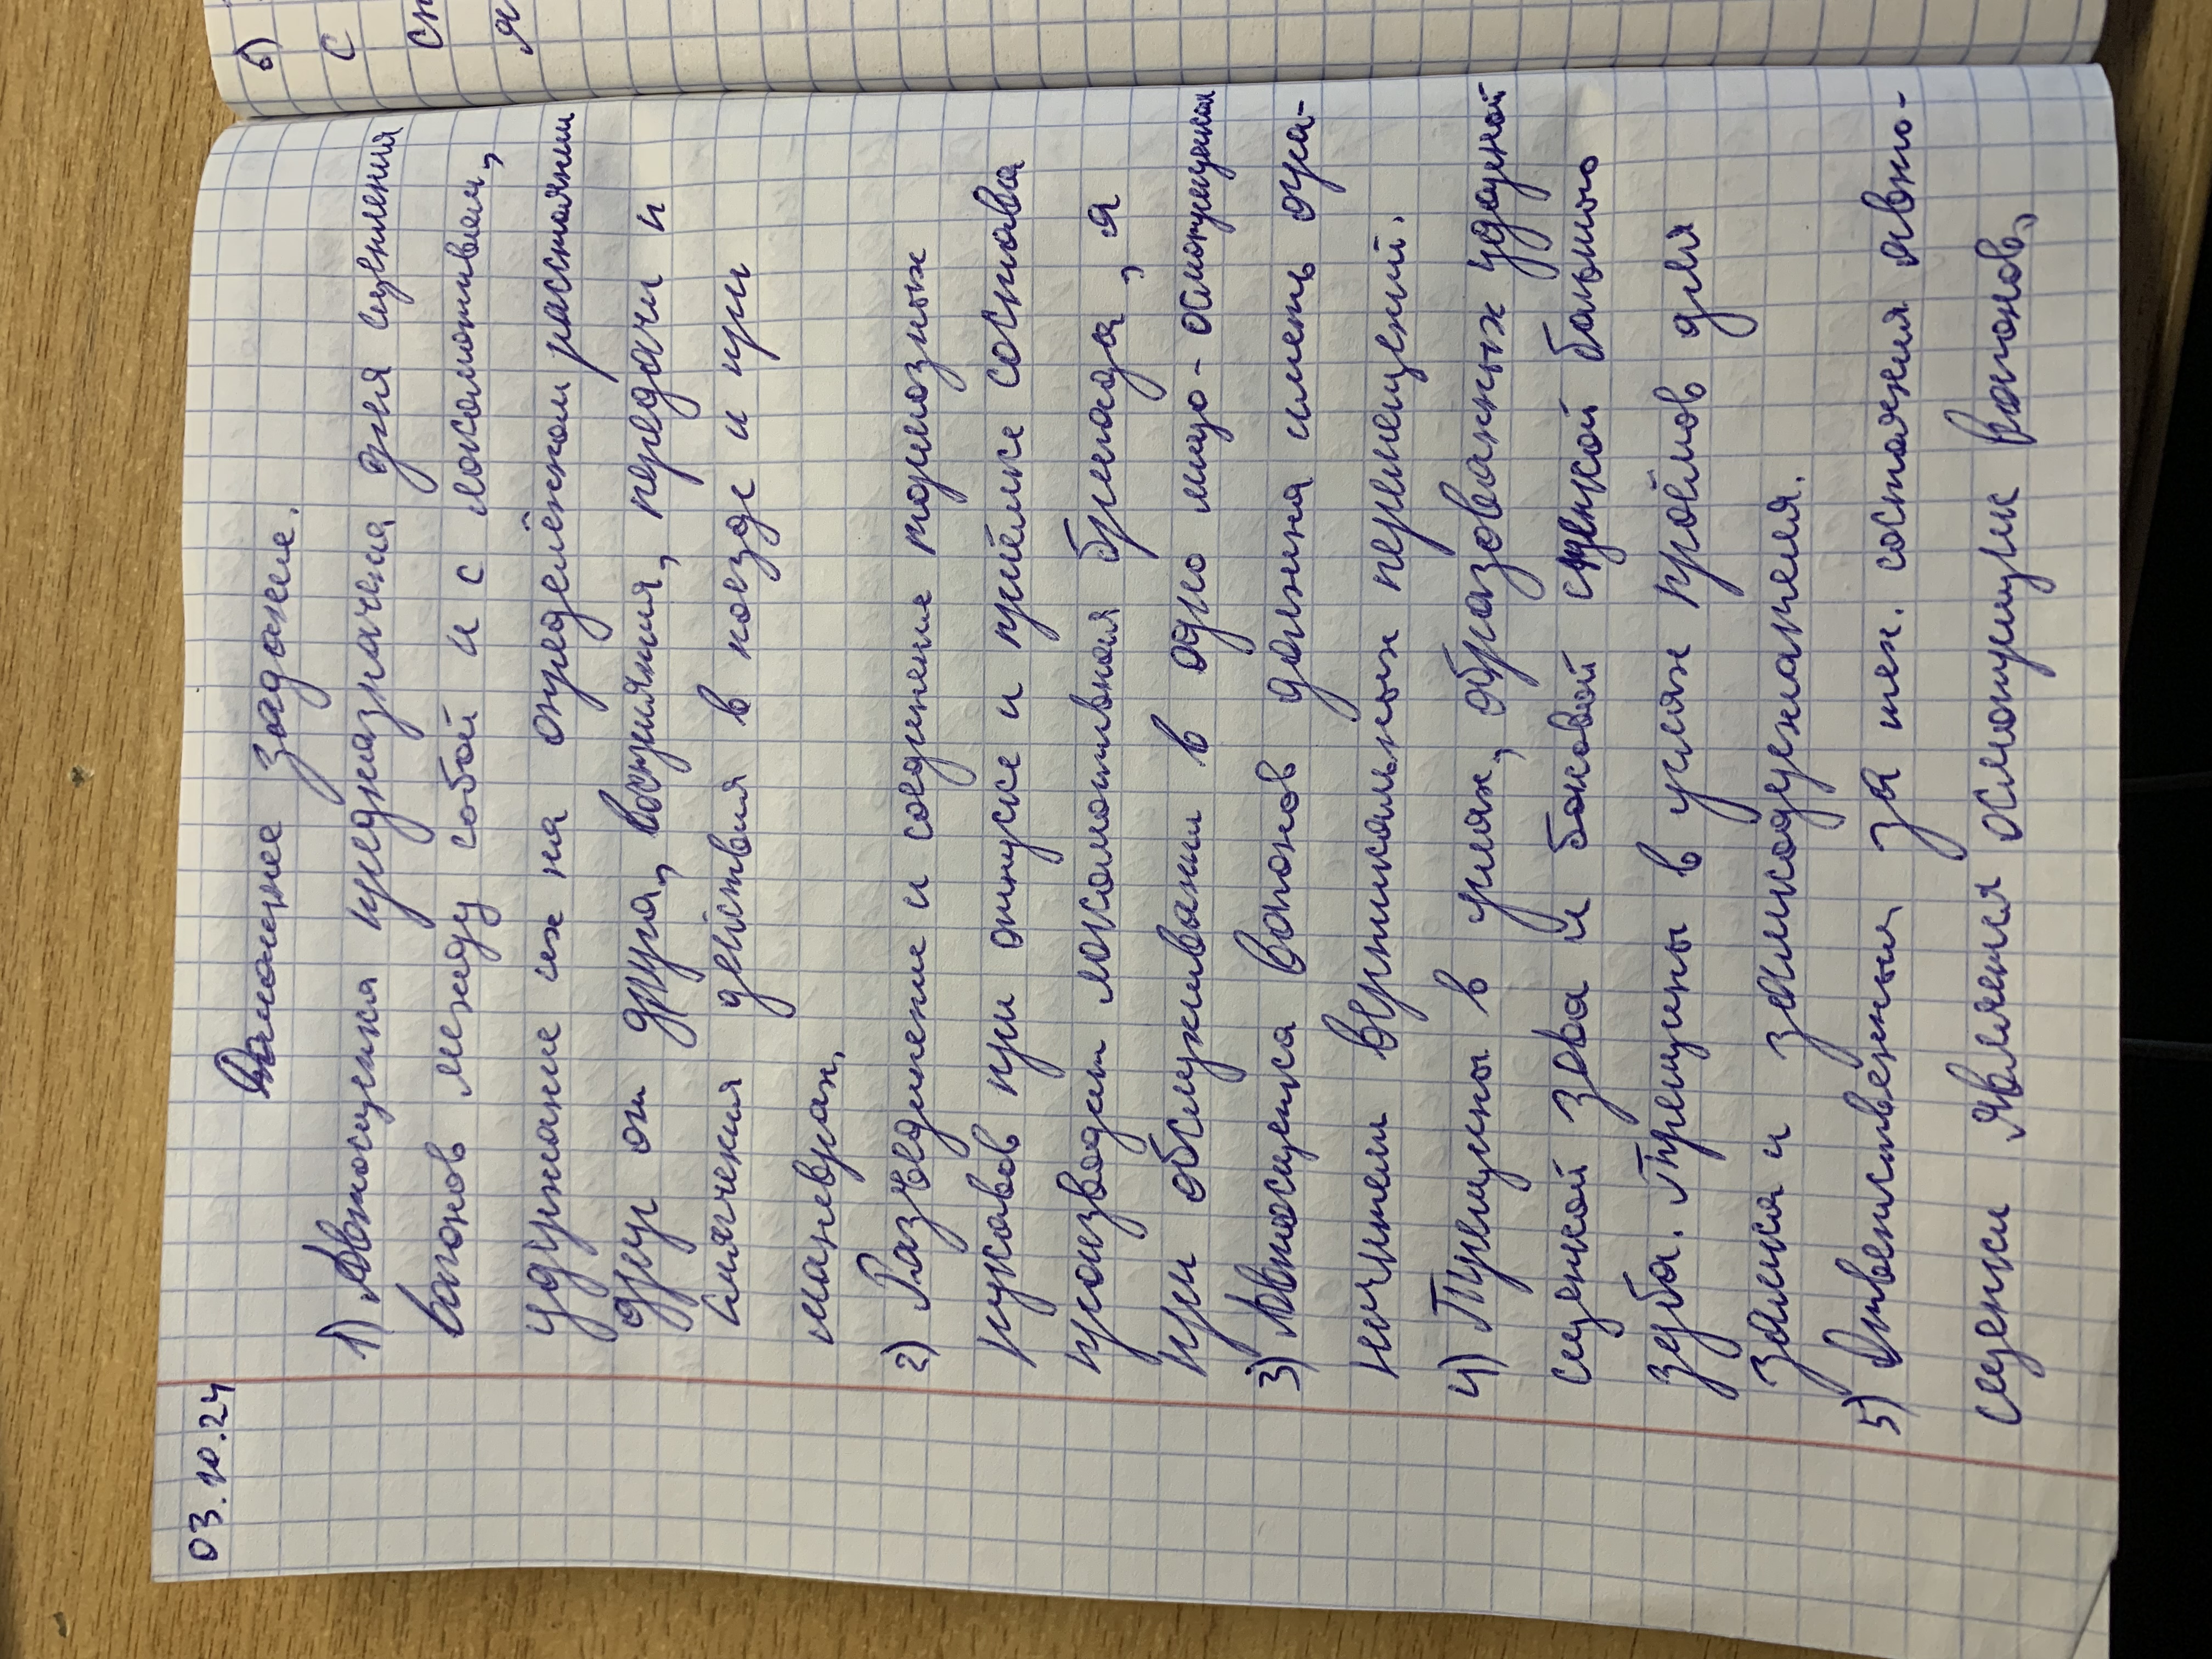 03.10.24
Домашнее задание.
1) Автосцепка предназначена для сцепления
вагонов между собой и с локомотивом,
удержание их на определённом расстоянии
друг от друга, восприятия, передачи и
смягчения действия в поезде и при
маневрах.
2) Разъединение и соединение тормозных
рукавов при отпуске и приёмке состава
производит локомотивная бригада, а
при обслуживании в одно лицо - осмотрщики
3) Автосцепка вагонов должна иметь огра-
ничители вертикальных перемещений.
4) Трещины в углах, образованных ударной
стенкой зева и боковой стенкой большого
зуба. Трещины в углах проёмов для
замка и замкодержателя.
5) Ответственным за тех. состояния авто-
сцепки являения осмотрщик вагонов,
6)
с
сп
я